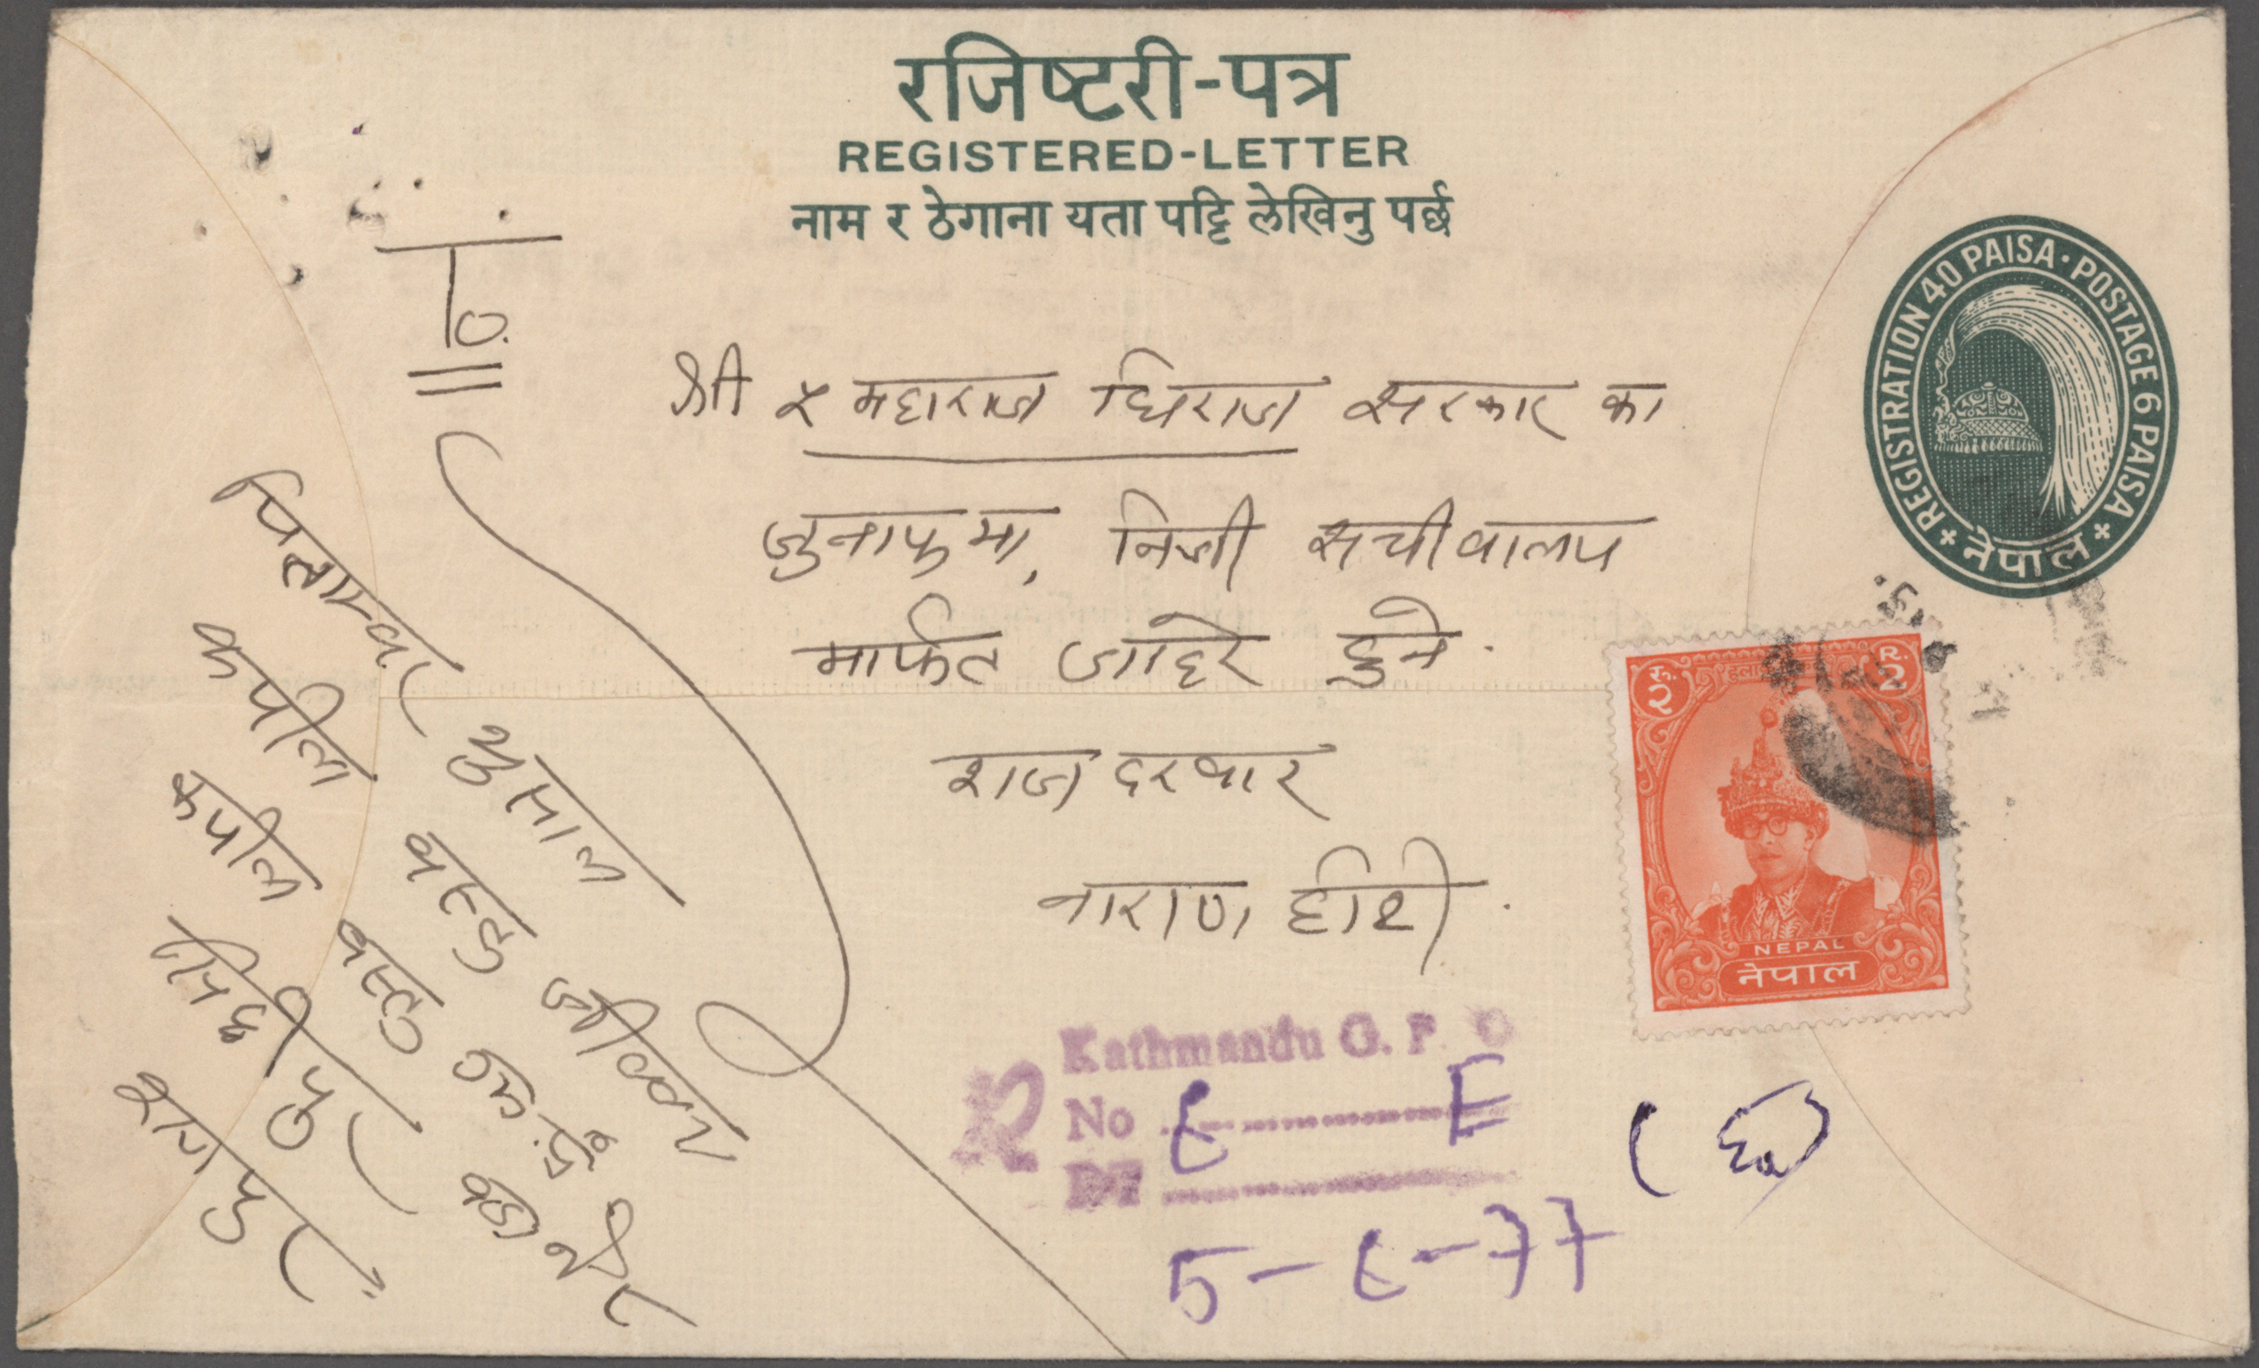 रजिष्टरी-पत्र
REGISTERED-LETTER
नाम र ठेगाना यता पट्टि लेखिनु पर्छ
REGISTRATION 40 PAISA · POSTAGE 6 PAISA
नेपाल
To.
श्री ५ महाराज धिराज सरकार का
जुनाफमा, निजी सचीवालय
मार्फत जाहेर हुने.
राज दरवार
नारायण हीटी.
रु. २
R. 2
NEPAL
नेपाल
पिताम्वर भुसाल
कपील वस्तु
कपील वस्तु
शिवपुर
Kathmandu G. P. O
R No
5-6-77